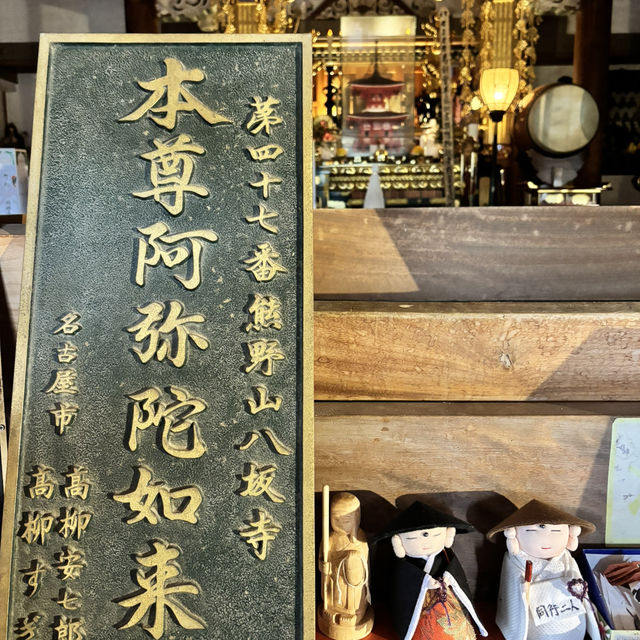 第四十七番熊野山八坂寺
本尊阿弥陀如来
名古屋市
高柳安七郎
高柳すぎ
同行二人